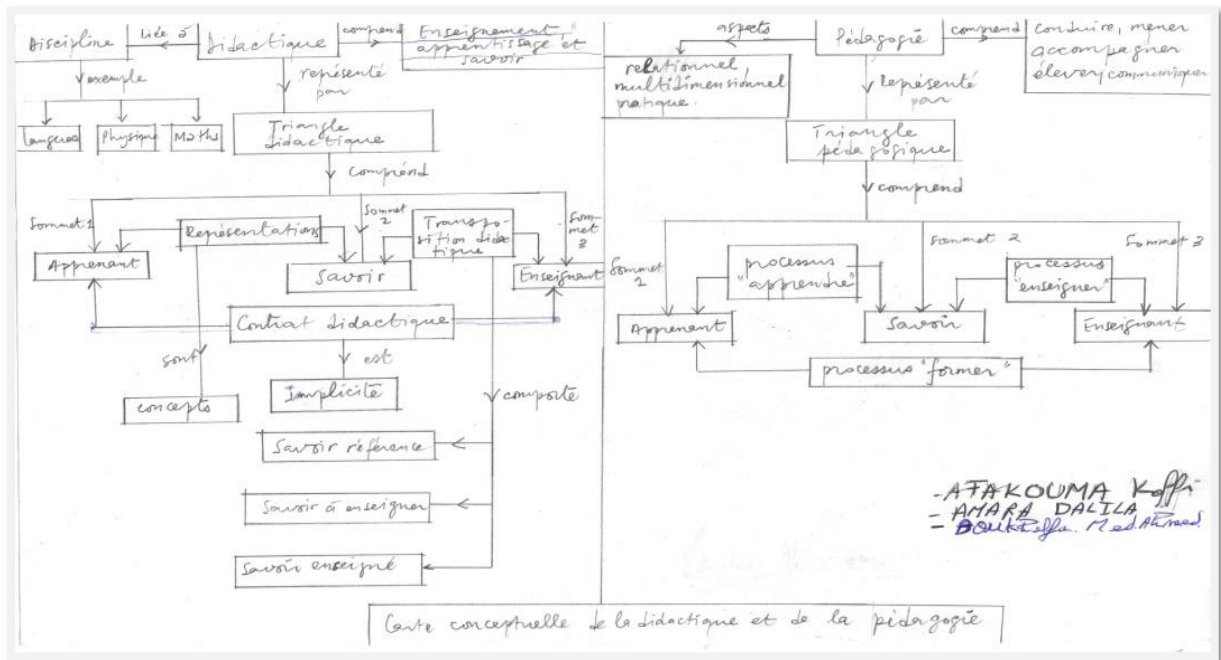 Discipline
liée à
Didactique
comprend
Enseignement,
apprentissage et
savoir
exemple
Langues
Physique
Maths
représenté
par
Triangle
didactique
comprend
Sommet 1
Représentations
Sommet
2
Transpo-
sition didac
tique
Som-
met
3
Apprenant
Savoir
Enseignant
Contrat didactique
sont
est
concepts
Implicite
comporte
Savoir référence
Savoir à enseigner
Savoir enseigné
aspects
Pédagogie
comprend
conduire, mener
accompagner
élever, communiquer
relationnel,
multidimensionnel
pratique.
Représenté
par
Triangle
pédagogique
comprend
Sommet
1
Sommet 2
Sommet 3
processus
"apprendre"
processus
"enseigner"
Apprenant
Savoir
Enseignant
processus "former"
- ATAKOUMA Koffi
- AMARA DALILA
Carte conceptuelle de la didactique et de la pédagogie